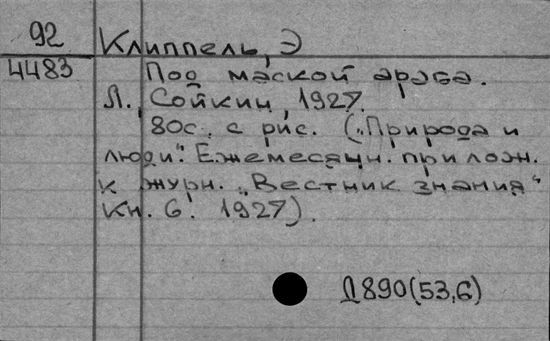 92 Клиппель, Э
4483 Под маской араба.
Л., Сойкин, 1927.
80с. с рис. („Природа и
люди". Ежемесячн. прилож.
к журн. „Вестник знания"
Кн. 6. 1927).
Д890(53,6)